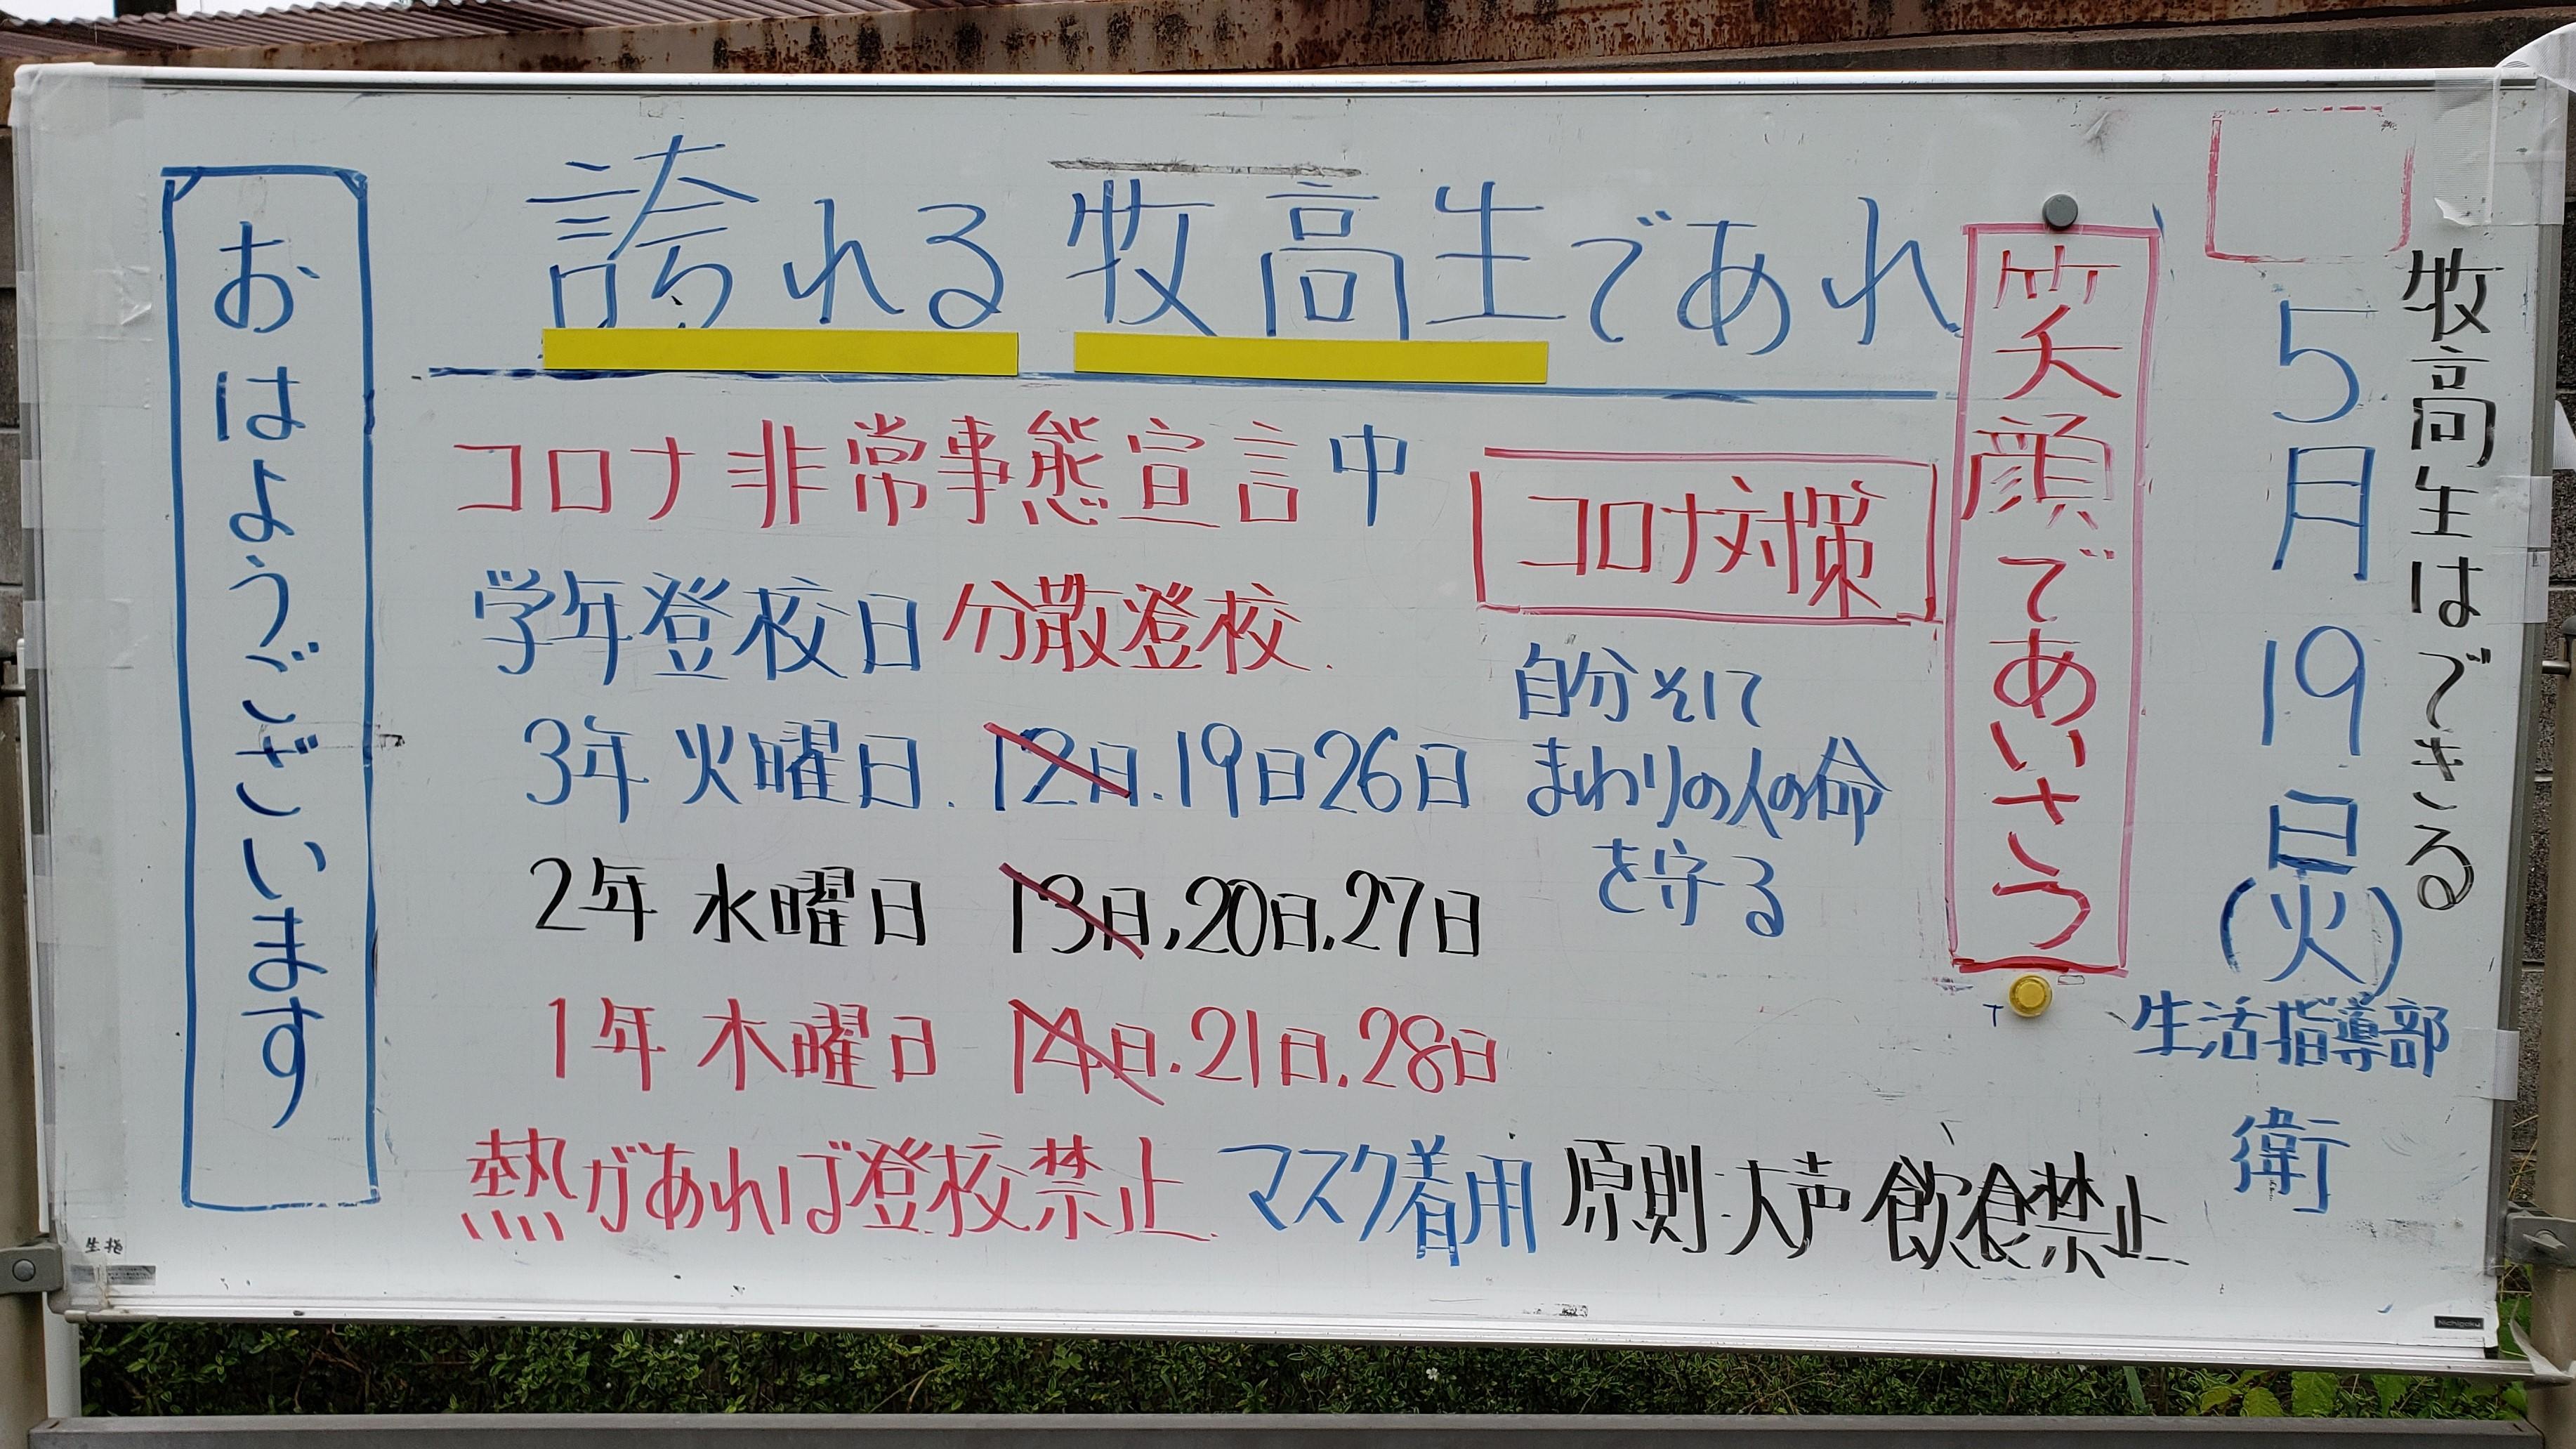 牧高生はできる
5月19日(火)
生活指導部
衛
笑顔であいさつ
誇れる牧高生であれ
コロナ非常事態宣言中
コロナ対策
自分そして
まわりの人の命
を守る
学年登校日 分散登校.
3年 火曜日. 12日.19日26日
2年 水曜日 13日,20日.27日
1年 木曜日 14日.21日.28日
熱があれば登校禁止. マスク着用 原則 大声 飲食禁止
おはようございます
生指
Nichigaku